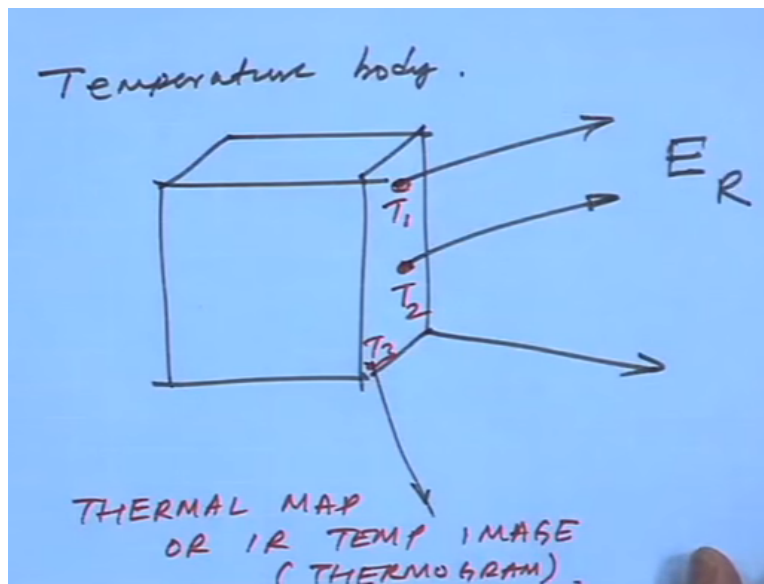 Temperature body.
E_R
T1
T2
T3
THERMAL MAP
OR IR TEMP IMAGE
(THERMOGRAM).